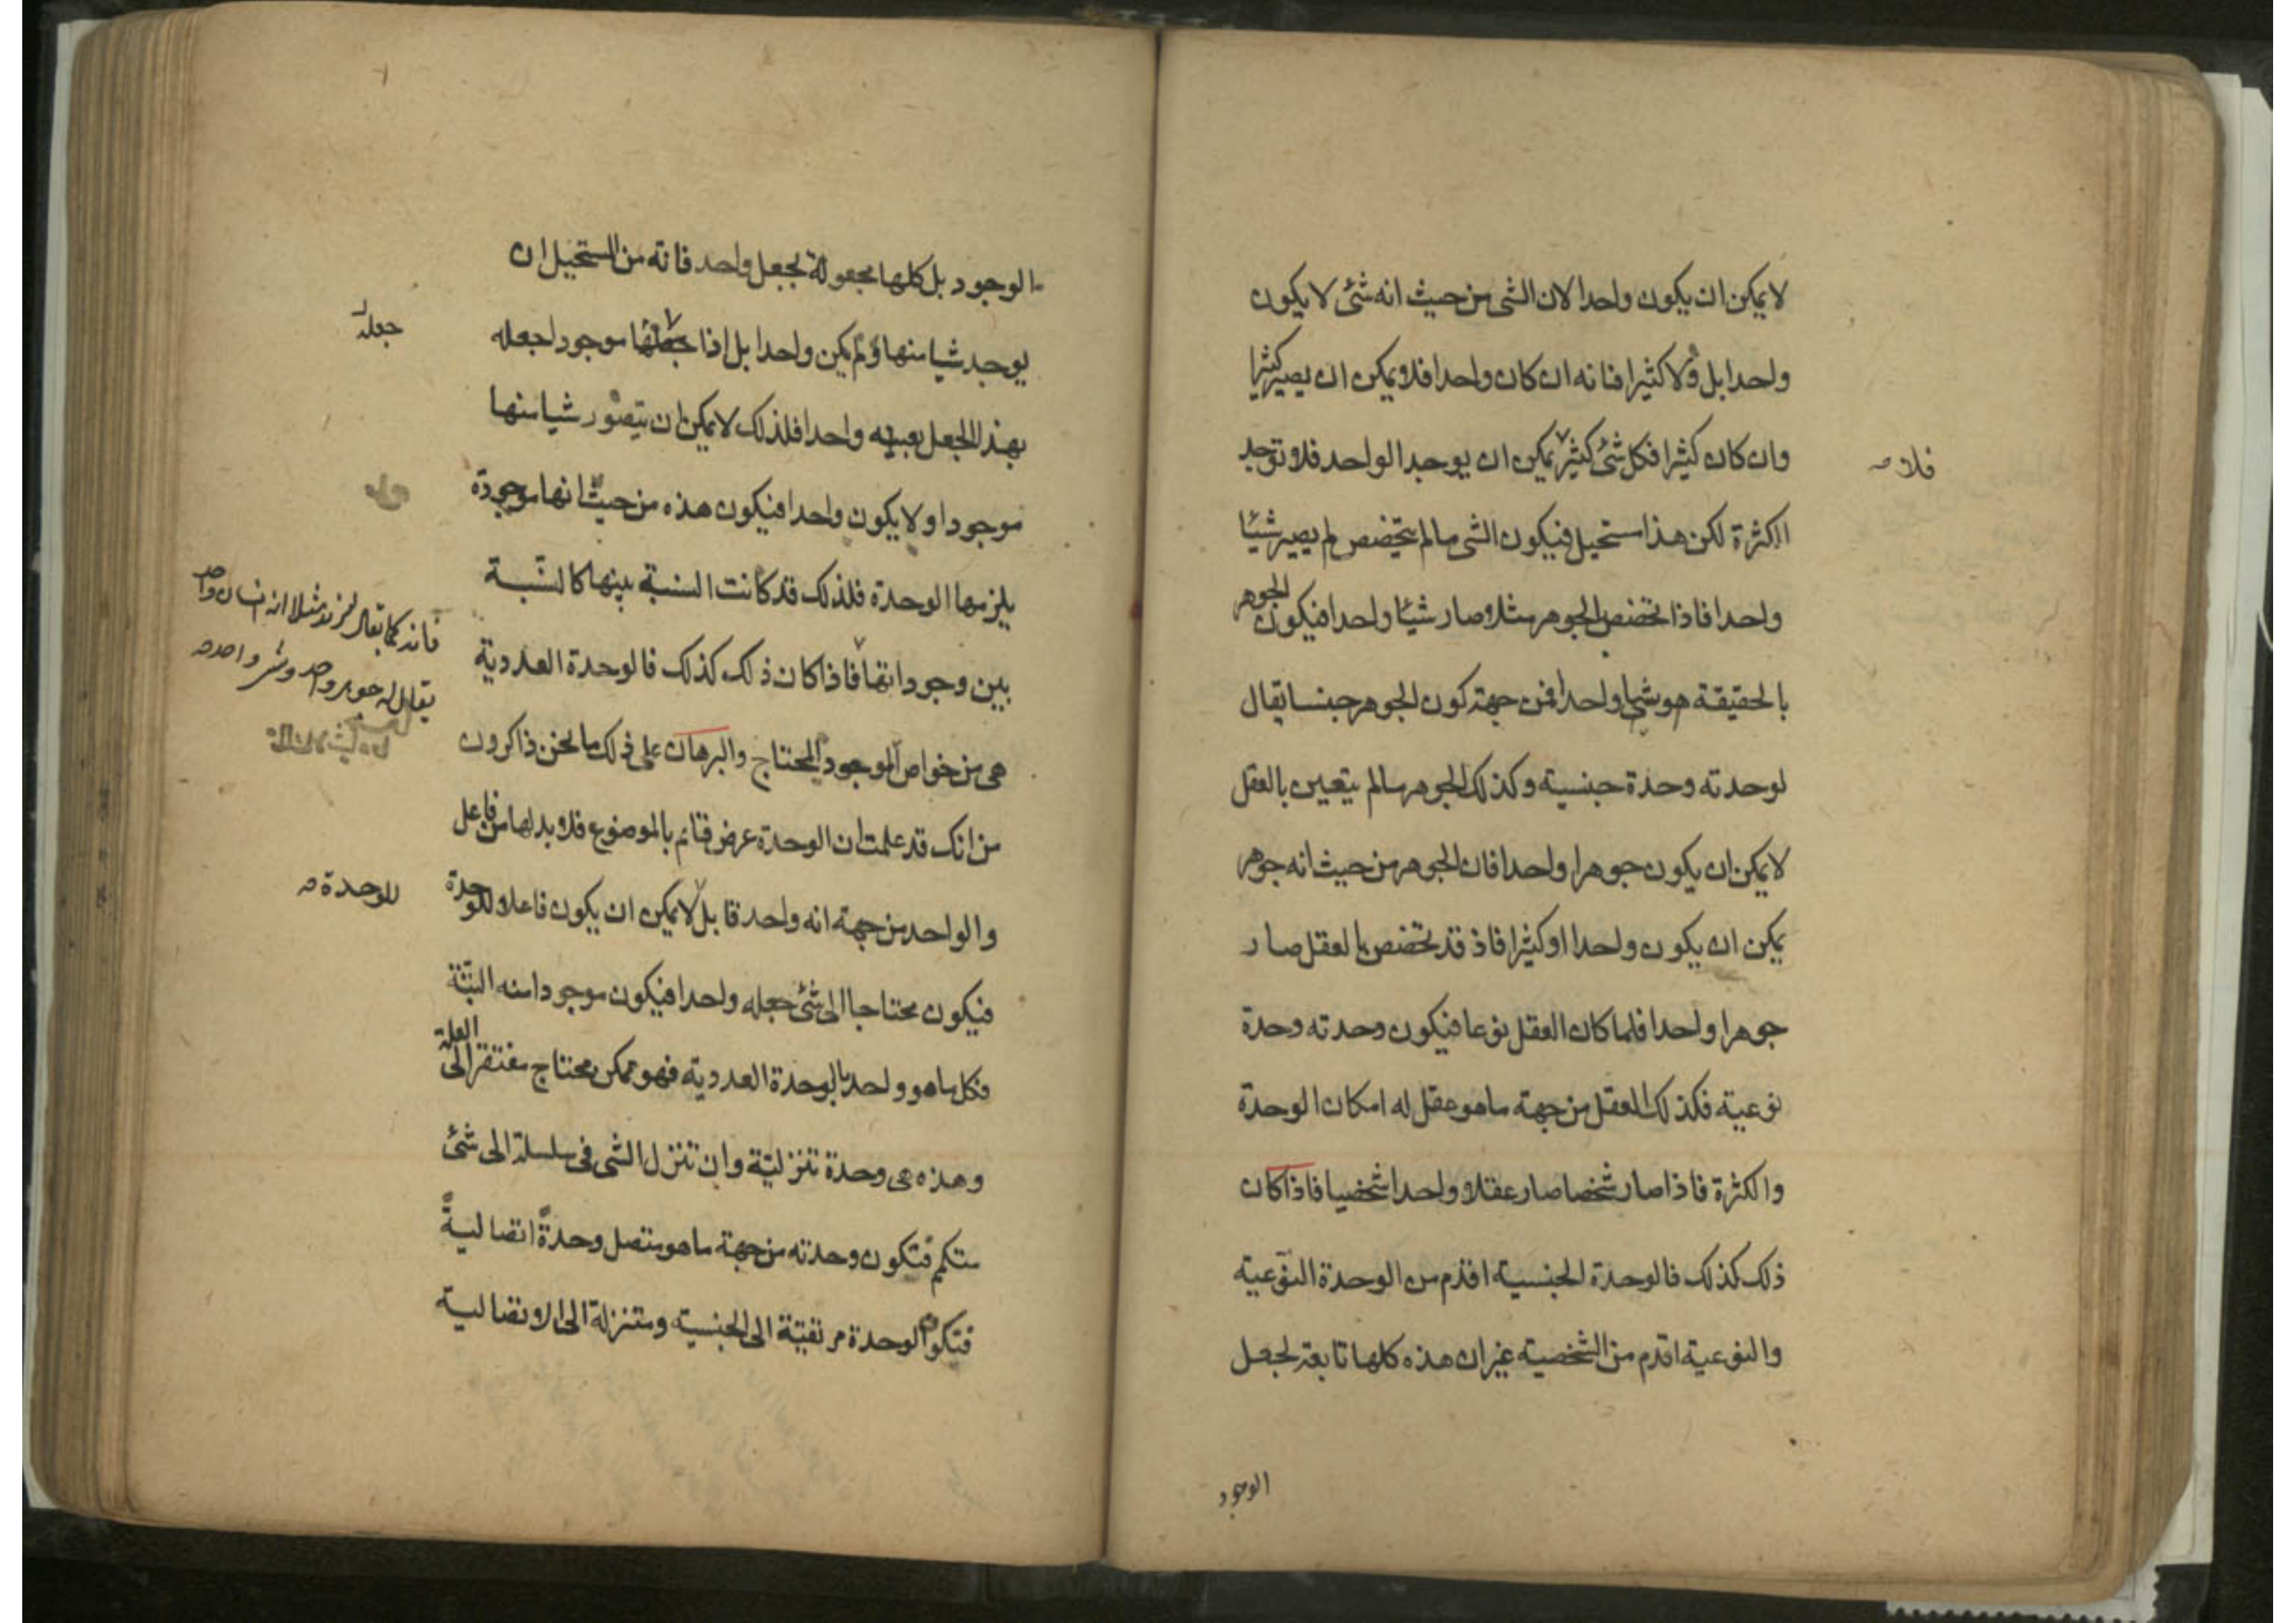 لا يمكن ان يكون واحدا لان الشى من حيث انه شئ لا يكون
واحدا بل ولا كثيرا فانه ان كان واحدا فلا يمكن ان يصير كثيرا
وان كان كثيرا فكل شئ كثير يمكن ان يوجد الواحد فلا توجد
فلا
الكثرة لكن هذا مستحيل فيكون الشى مالم يتخصص لم يصير شيئا
واحدا فاذا تخصص بالجوهر مثلا صار شيئا واحدا فيكون الجوهر
بالحقيقة هو شيا واحدا فمن جهة كون الجوهر جنسا يقال
لوحدته وحدة جنسية وكذلك الجوهر مالم يتعين بالعقل
لا يمكن ان يكون جوهرا واحدا فان الجوهر من حيث انه جوهر
يمكن ان يكون واحدا او كثيرا فاذ قد تخصص بالعقل صار
جوهرا واحدا فلما كان العقل نوعا فيكون وحدته وحدة
نوعية فكذلك العقل من جهة ماهو عقل له امكان الوحدة
والكثرة فاذا صار شخصا صار عقلا واحدا شخصيا فاذا كان
ذلك كذلك فالوحدة الجنسية اقدم من الوحدة النوعية
والنوعية اقدم من الشخصية غير ان هذه كلها تابعة لجعل
الوجود
الوجود بل كلها مجعولة بجعل واحد فانه من المستحيل ان
يوجد شيا منها ولم يكن واحدا بل اذا جعلها موجودا جعله
جعله
بهذا الجعل بعينه واحدا فلذلك لا يمكن ان يتصور شيا منها
موجودا ولا يكون واحدا فيكون هذه من حيث انها موجودة
يلزمها الوحدة فلذلك قد كانت النسبة بينها كالنسبة
فانه كما يقال لزيد مثلا انه انسان واحد
يقال له جوهر واحد وشى واحد
بين وجوداتها فاذا كان ذلك كذلك فالوحدة العددية
هى من خواص الموجود المحتاج والبرهان على ذلك ما نحن ذاكرون
من انك قد علمت ان الوحدة عرض قائم بالموضوع فلا بد لها من فاعل
والواحد من جهة انه واحد قابل لا يمكن ان يكون فاعلا للوحدة
للوحدة
فيكون محتاجا الى شئ جعله واحدا فيكون موجودا منه البتة
فكل ماهو واحد بالوحدة العددية فهو ممكن محتاج مفتقر الى العلة
وهذه هى وحدة تنزلية وان تنزل الشى فى سلسلة الى شئ
متكمم فتكون وحدته من جهة ماهو متصل وحدة اتصالية
فتكون الوحدة مرتقية الى الجنسية ومتنزلة الى الاتصالية